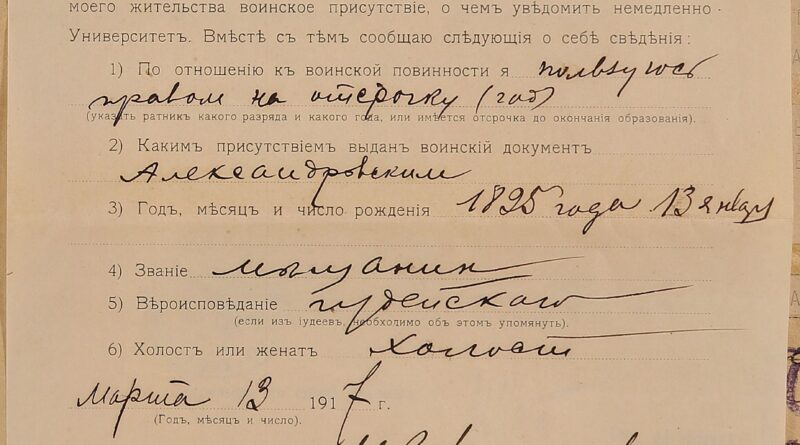 моего жительства воинское присутствіе, о чемъ увѣдомить немедленно
Университетъ. Вмѣстѣ съ тѣмъ сообщаю слѣдующія о себѣ свѣдѣнія:
1) По отношенію къ воинской повинности я пользуюсь
правом на отсрочку (год)
(указать ратник какого разряда и какого года, или имѣется отсрочка до окончанія образованія).
2) Каким присутствіем выдан воинскій документъ
Александровским
3) Годъ, мѣсяцъ и число рожденія 1895 года 13 января
4) Званіе мещанин
5) Вѣроисповѣданіе іудейскаго
(если изъ іудеевъ, необходимо объ этомъ упомянуть).
6) Холостъ или женатъ холост
Марта 13 1917 г.
(Годъ, мѣсяцъ и число).